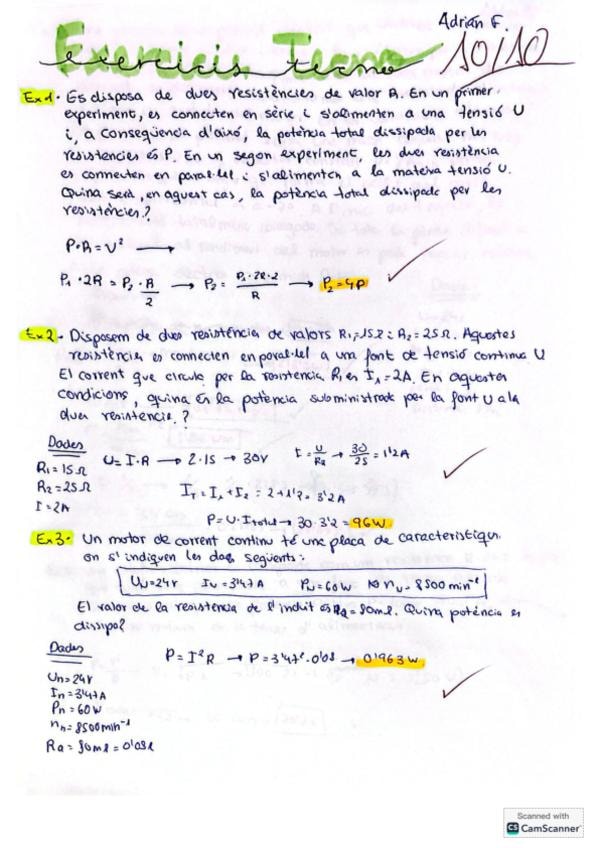 Adrián F.
Exercicis Tecno
exercicis tecno
10/10
Ex1. Es disposa de dues resistències de valor R. En un primer
experiment, es connecten en sèrie i s'alimenten a una tensió U
i, a Conseqüencia d'això, la potència total dissipada per les
resistencies és P. En un segon experiment, les dues resistència
es connecten en paral·lel i s'alimenten a la mateixa tensió U.
Quina serà, en aquest cas, la potència total dissipada per les
resistències?
P·R = U² →
P₁ · 2R = P₂ · R/2 → P₂ = P₁·2R·2/R → P₂ = 4P
Ex2. Disposem de dues resistència de valors R₁=15Ω i R₂ = 25Ω. Aquestes
resistència es connecten en paral·lel a una font de tensió continua U
El corrent que circula per la resistencia R₁ és I₁ = 2A. En aquestes
condicions, quina és la potència subministrada per la font U a la
dues resistencies?
Dades
R₁ = 15Ω
R₂ = 25Ω
I = 2A
U = I·R → 2·15 → 30V
I = U/R₂ → 30/25 = 1'2A
I_T = I₁ + I₂ = 2 + 1'2 = 3'2A
P = U·I_total → 30·3'2 = 96W
Ex3. Un motor de corrent continu té una placa de caracteristiques
on s'indiquen les dades següents:
U_N = 24V I_N = 3'47A P_N = 60W n_N = 8500min⁻¹
El valor de la resistencia de l'induit és Ra = 80mΩ. Quina potència es
dissipa?
Dades
Un = 24V
In = 3'47A
Pn = 60W
nn = 8500min⁻¹
Ra = 80mΩ = 0'08Ω
P = I²R → P = 3'47²·0'08 → 0'963W
Scanned with
CS CamScanner